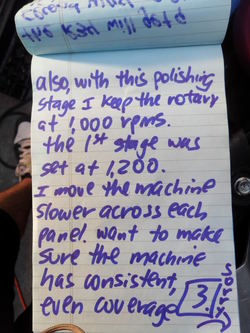 the K3d mill pad
also, with this polishing
stage I keep the rotary
at 1,000 rpms.
the 1st stage was
set at 1,200.
I move the machine
slower across each
panel. want to make
sure the machine
has consistent,
even coverage
3.